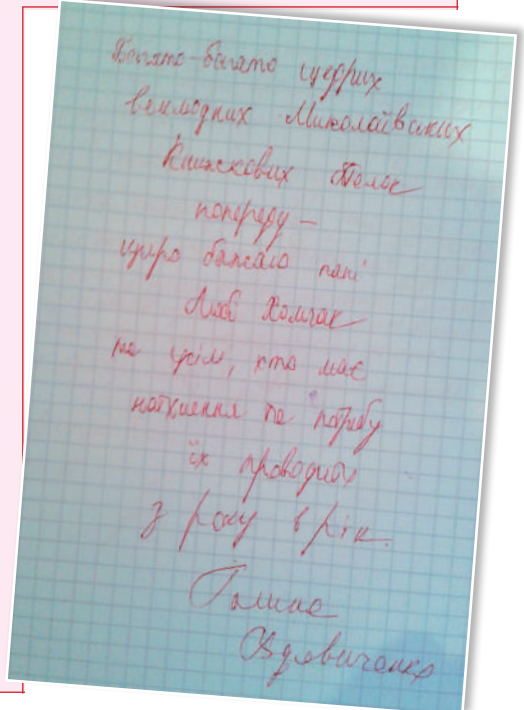 Багато-багато щедрих
велелюдних Миколаївських
Книжкових Толок
попереду –
щиро бажаю пані
Любі Хомчак
та усім, хто має
натхнення та потребу
їх проводити
з року в рік.
Галина
Вдовиченко